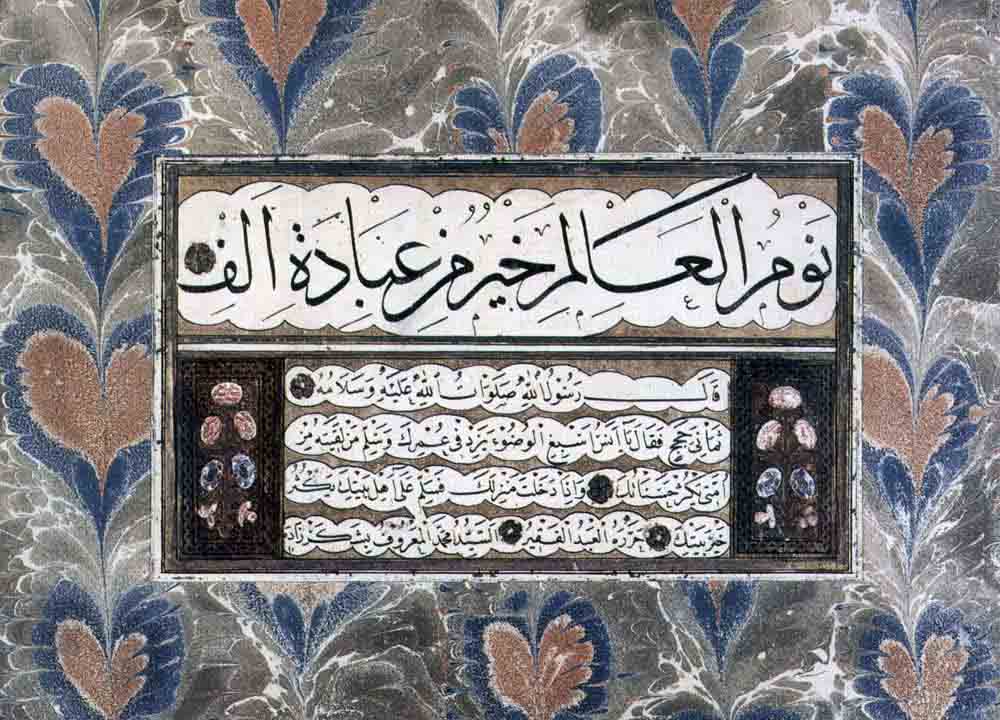 نَوْمُ الْعَالِمِ خَيْرٌ مِنْ عِبَادَةِ اَلْفِ
قَالَ رَسُولُ اللهِ صَلَوَاتُ اللهِ عَلَيْهِ وَسَلَامُهُ
ثماني حجج فقال يا انس اسبغ الوضوء يزد في عمرك وسلم من لقيته من
امتي تكثر حسناتك واذا دخلت منزلك فسلم على اهل بيتك يكثر
خير بيتك حرره العبد الفقير السيد محمد المعروف بشكرزاده